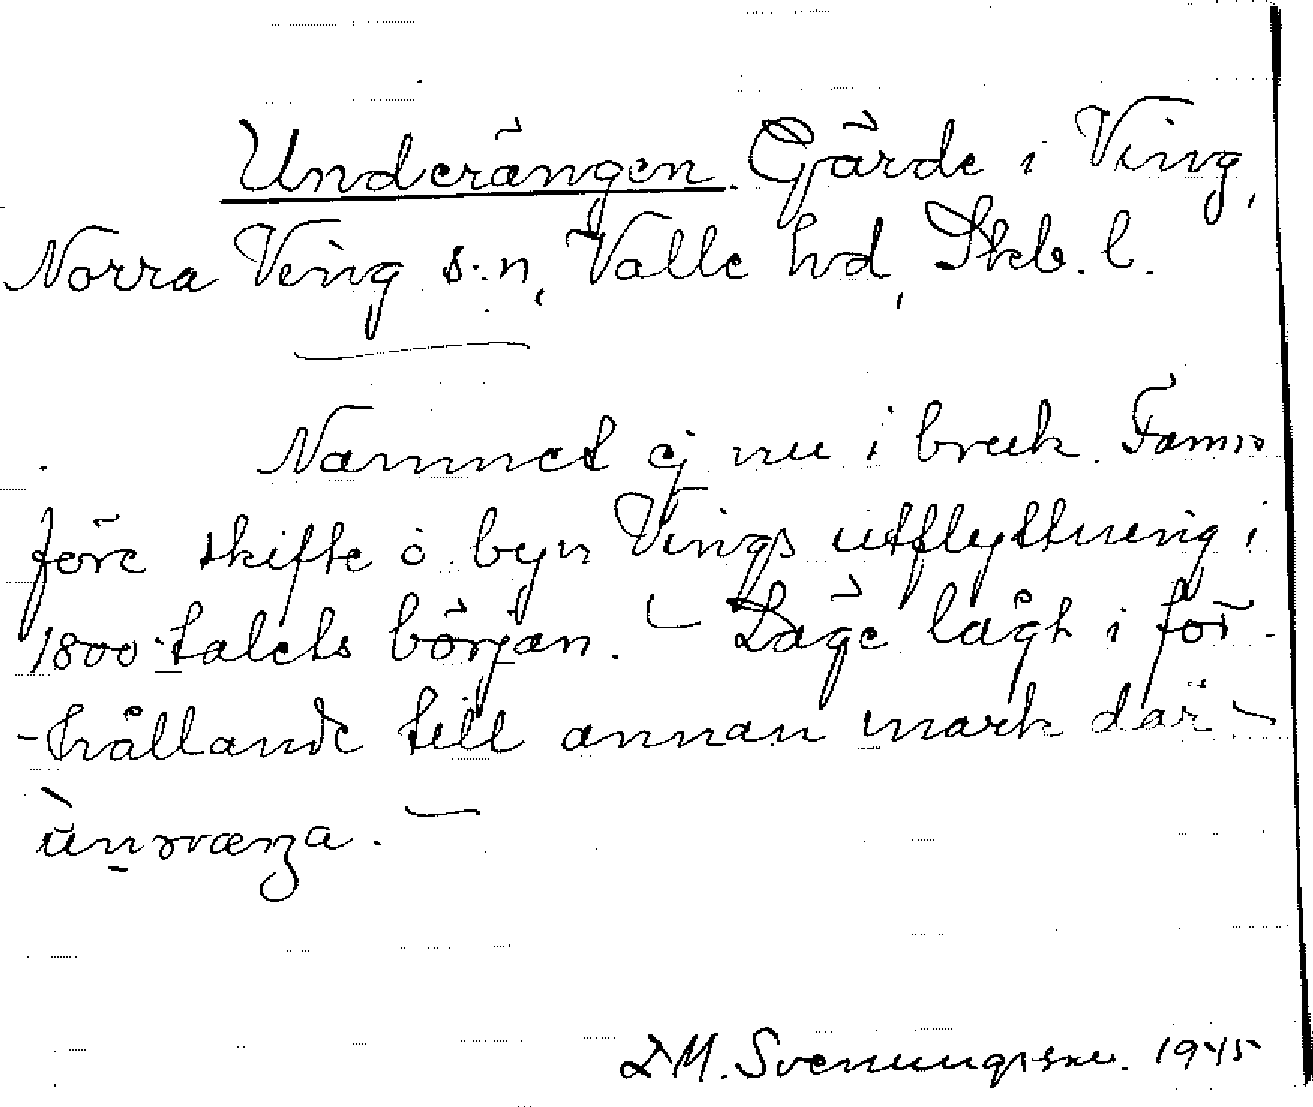 Underängen. Gärde i Ving,
Norra Ving s:n, Valle hd, Skb. l.
Namnet ej nu i bruk. Fanns
före skifte o. byn Vings utflyttning i
1800-talets början. – Läge lågt i för-
-hållande till annan mark där –
D M. Svenungsson. 1945